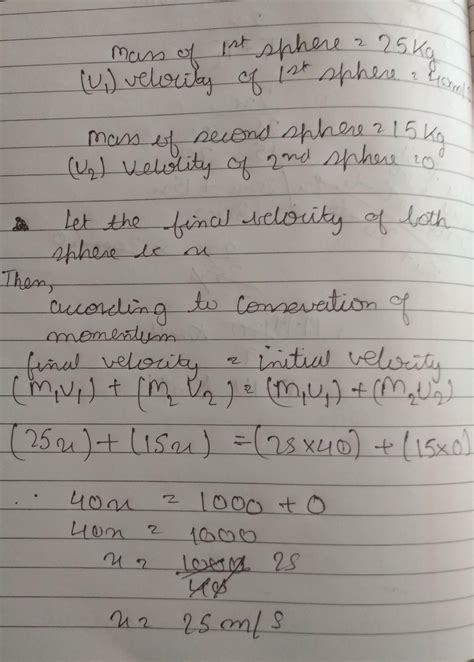 Mass of 1st sphere = 25 Kg
(U₁) velocity of 1st sphere = 40 m/s
Mass of second sphere = 15 Kg
(U₂) velocity of 2nd sphere = 0
Let the final velocity of both
sphere is x
Then,
according to consevation of
momentum
final velocity = initial velocity
(M₁U₁) + (M₂U₂) = (M₁U₁) + (M₂U₂)
(25x) + (15x) = (25×40) + (15×0)
∴ 40x = 1000 + 0
40x = 1000
x = 1000/40 25
x = 25 m/s